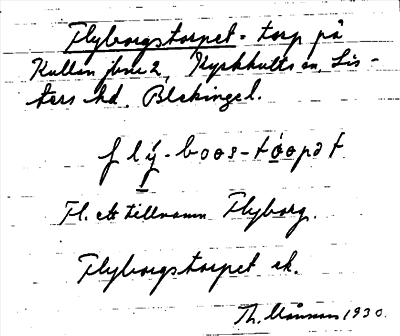 Flyborgstorpet = torp på
Kullen jbnr 2, Kyrkhults sn, Lis-
ters hd. Blekinge l.
flý-boos-tóopət
Fl. ett tillnamn Flyborg.
Flyborgstorpet ek.
Th. Månsson 1930.